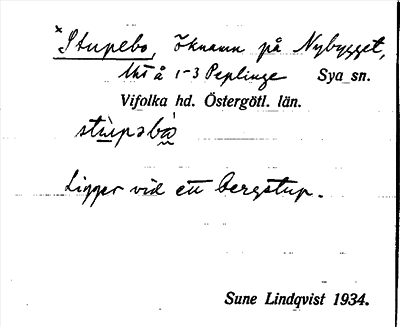 *Stupebo, öknamn på Nybygget,
Mt å 1-3 Peplinge Sya sn.
Vifolka hd. Östergötl. län.
stùpəbò
Ligger vid ett bergstup.
Sune Lindqvist 1934.